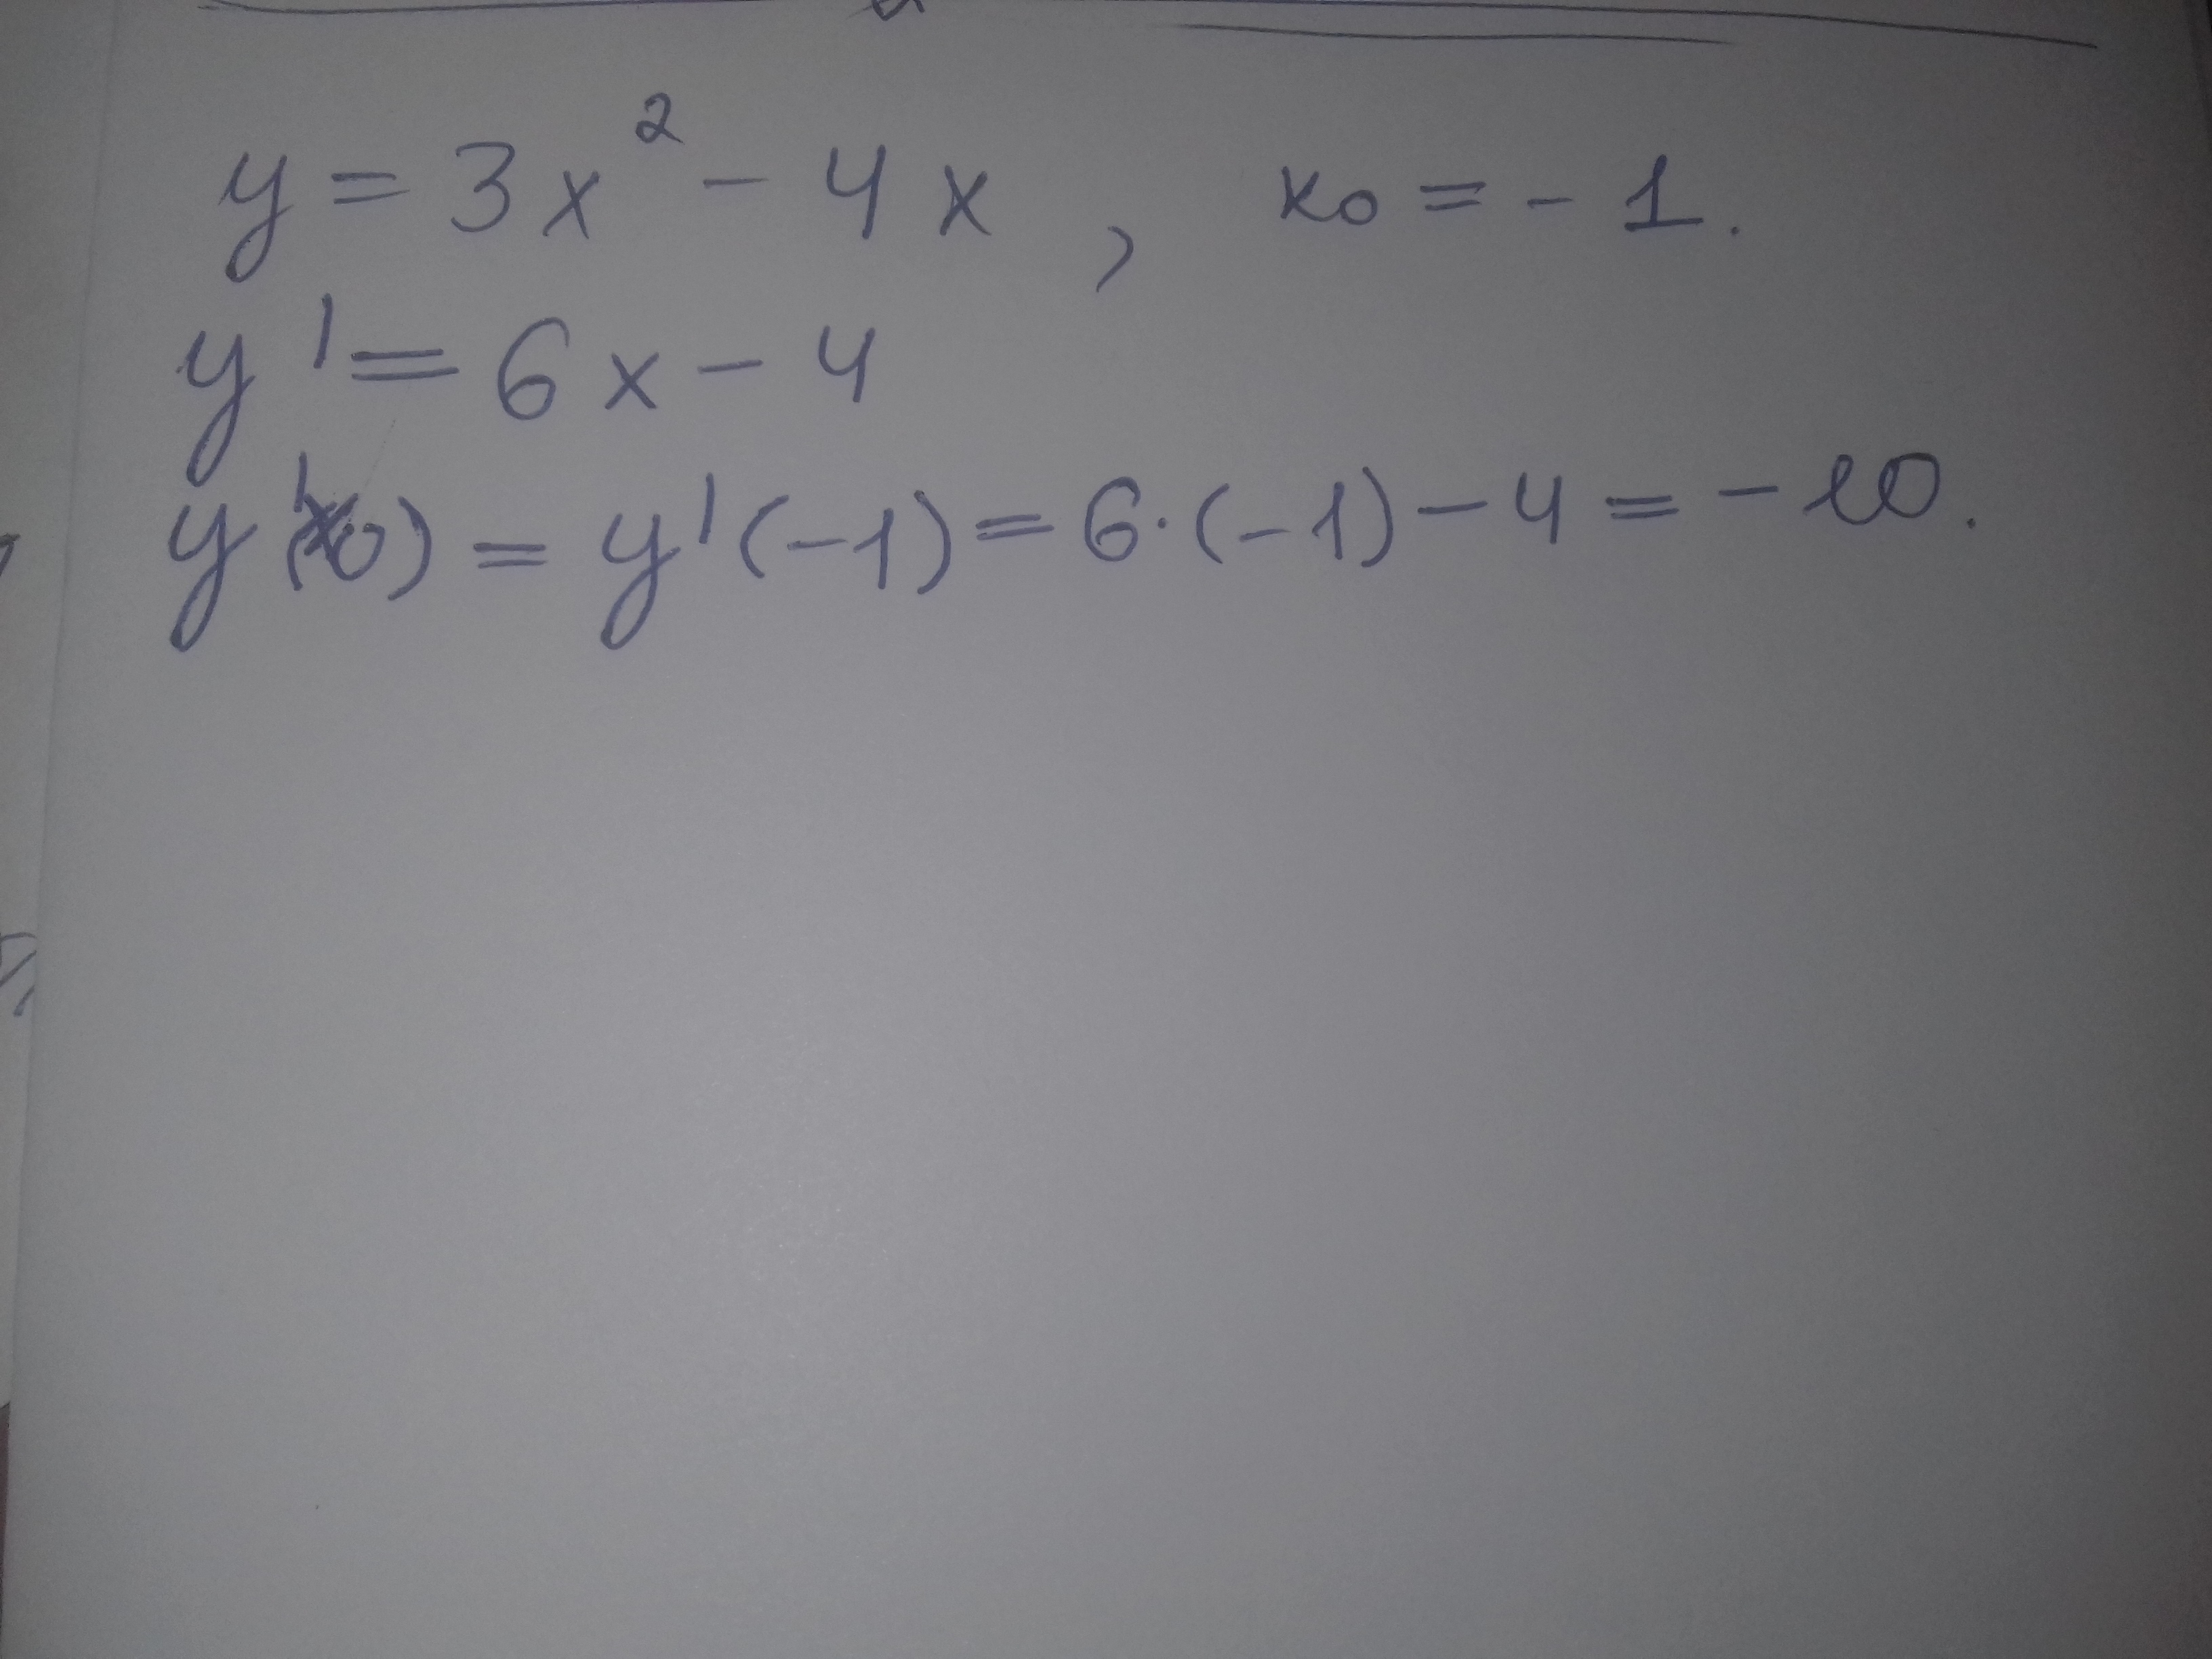 y = 3x² - 4x , x₀ = - 1.
y' = 6x - 4
y'(x₀) = y'(-1) = 6·(-1) - 4 = - 10.